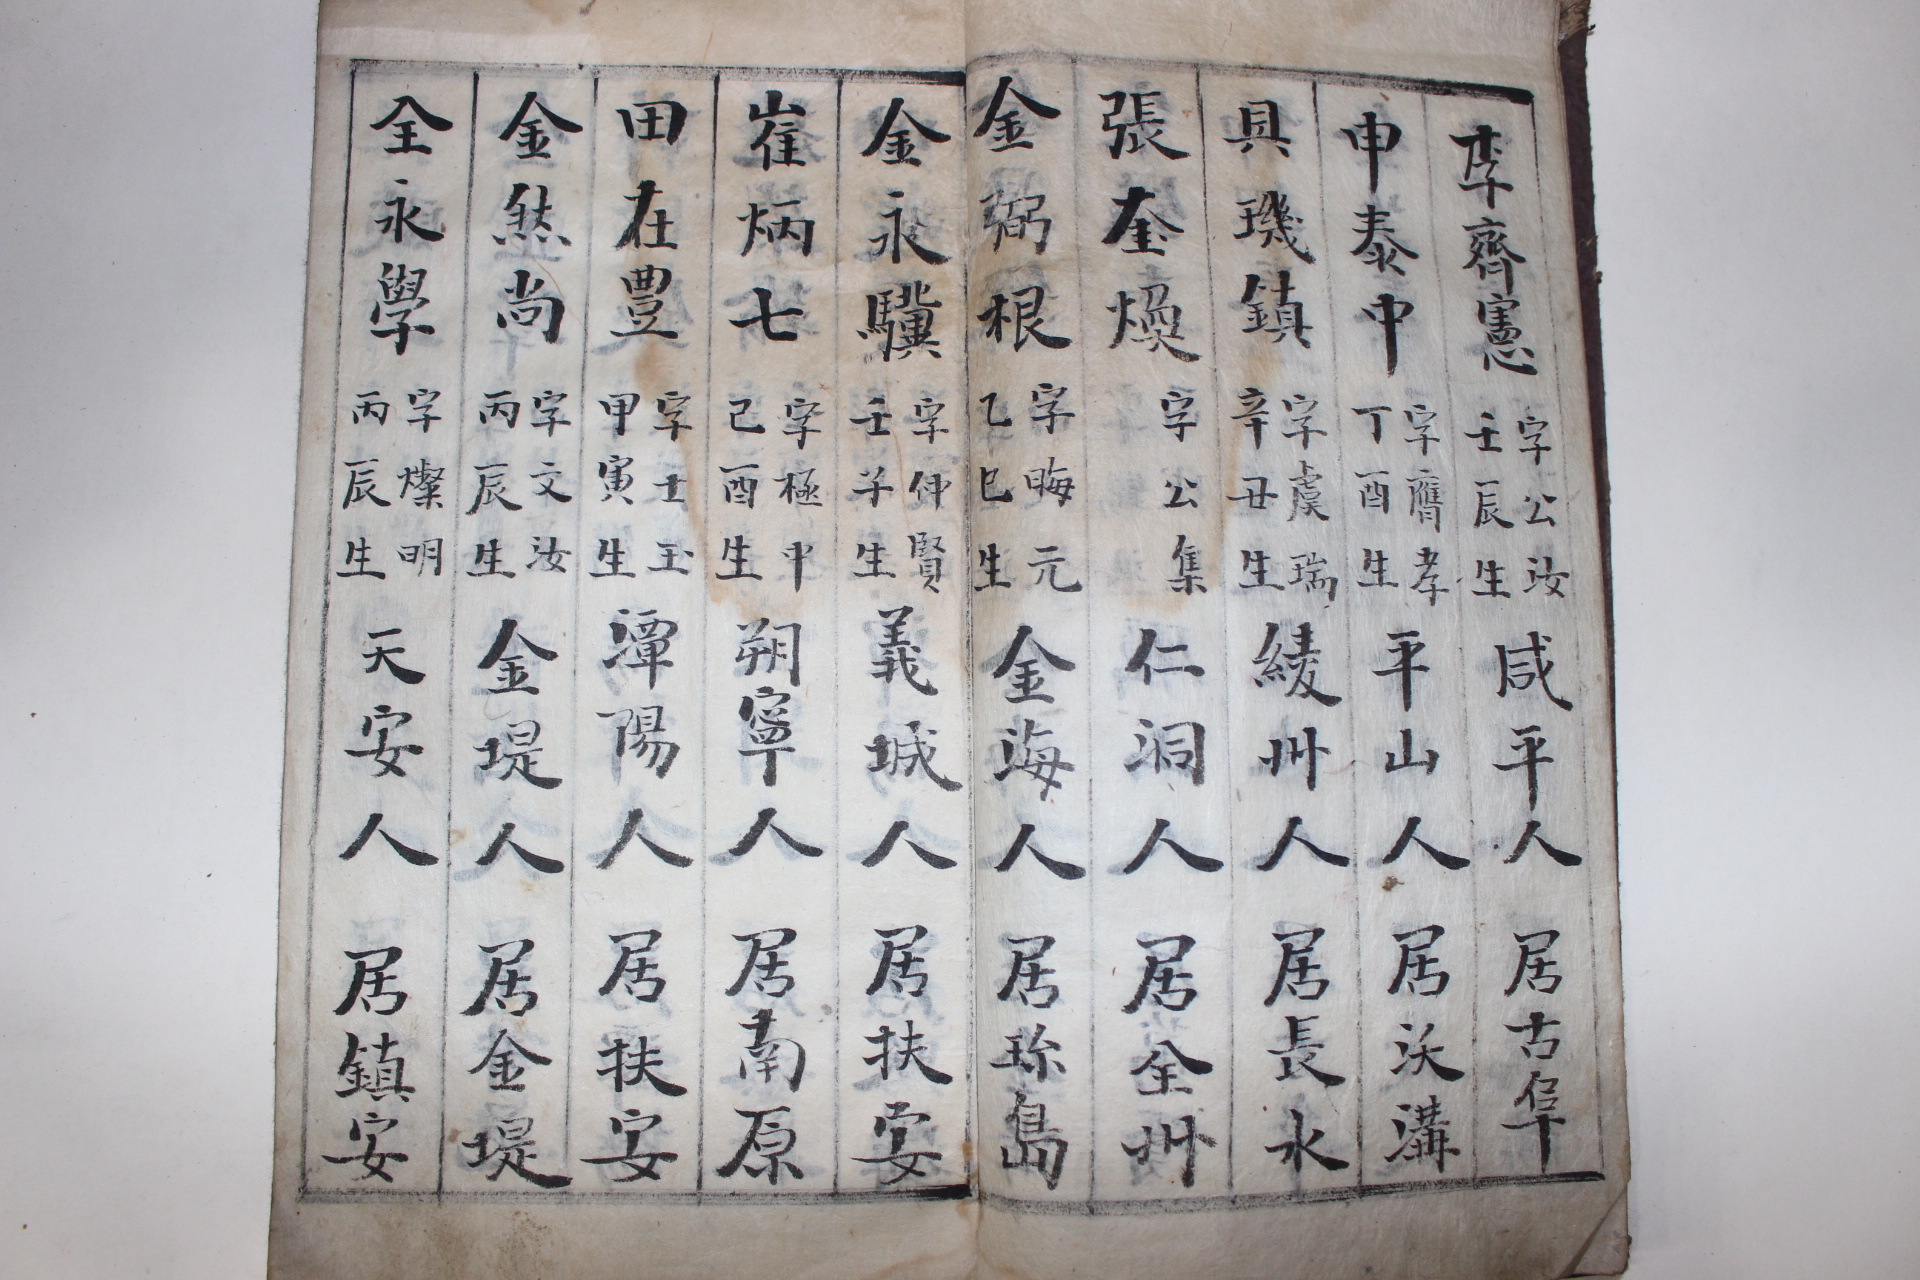 李齊憲 字公汝 壬辰生 咸平人 居古阜
申泰中 字膺孝 丁酉生 平山人 居沃溝
具璣鎮 字虞瑞 辛丑生 綾州人 居長水
張奎煥 字公集 仁洞人 居全州
金弼根 字晦元 乙巳生 金海人 居珎島
金永驥 字仲賢 壬子生 義城人 居扶安
崔炳七 字極中 己酉生 朔寧人 居南原
田在豊 字士玉 甲寅生 潭陽人 居扶安
金然尚 字文汝 丙辰生 金堤人 居金堤
全永學 字燦明 丙辰生 天安人 居鎮安